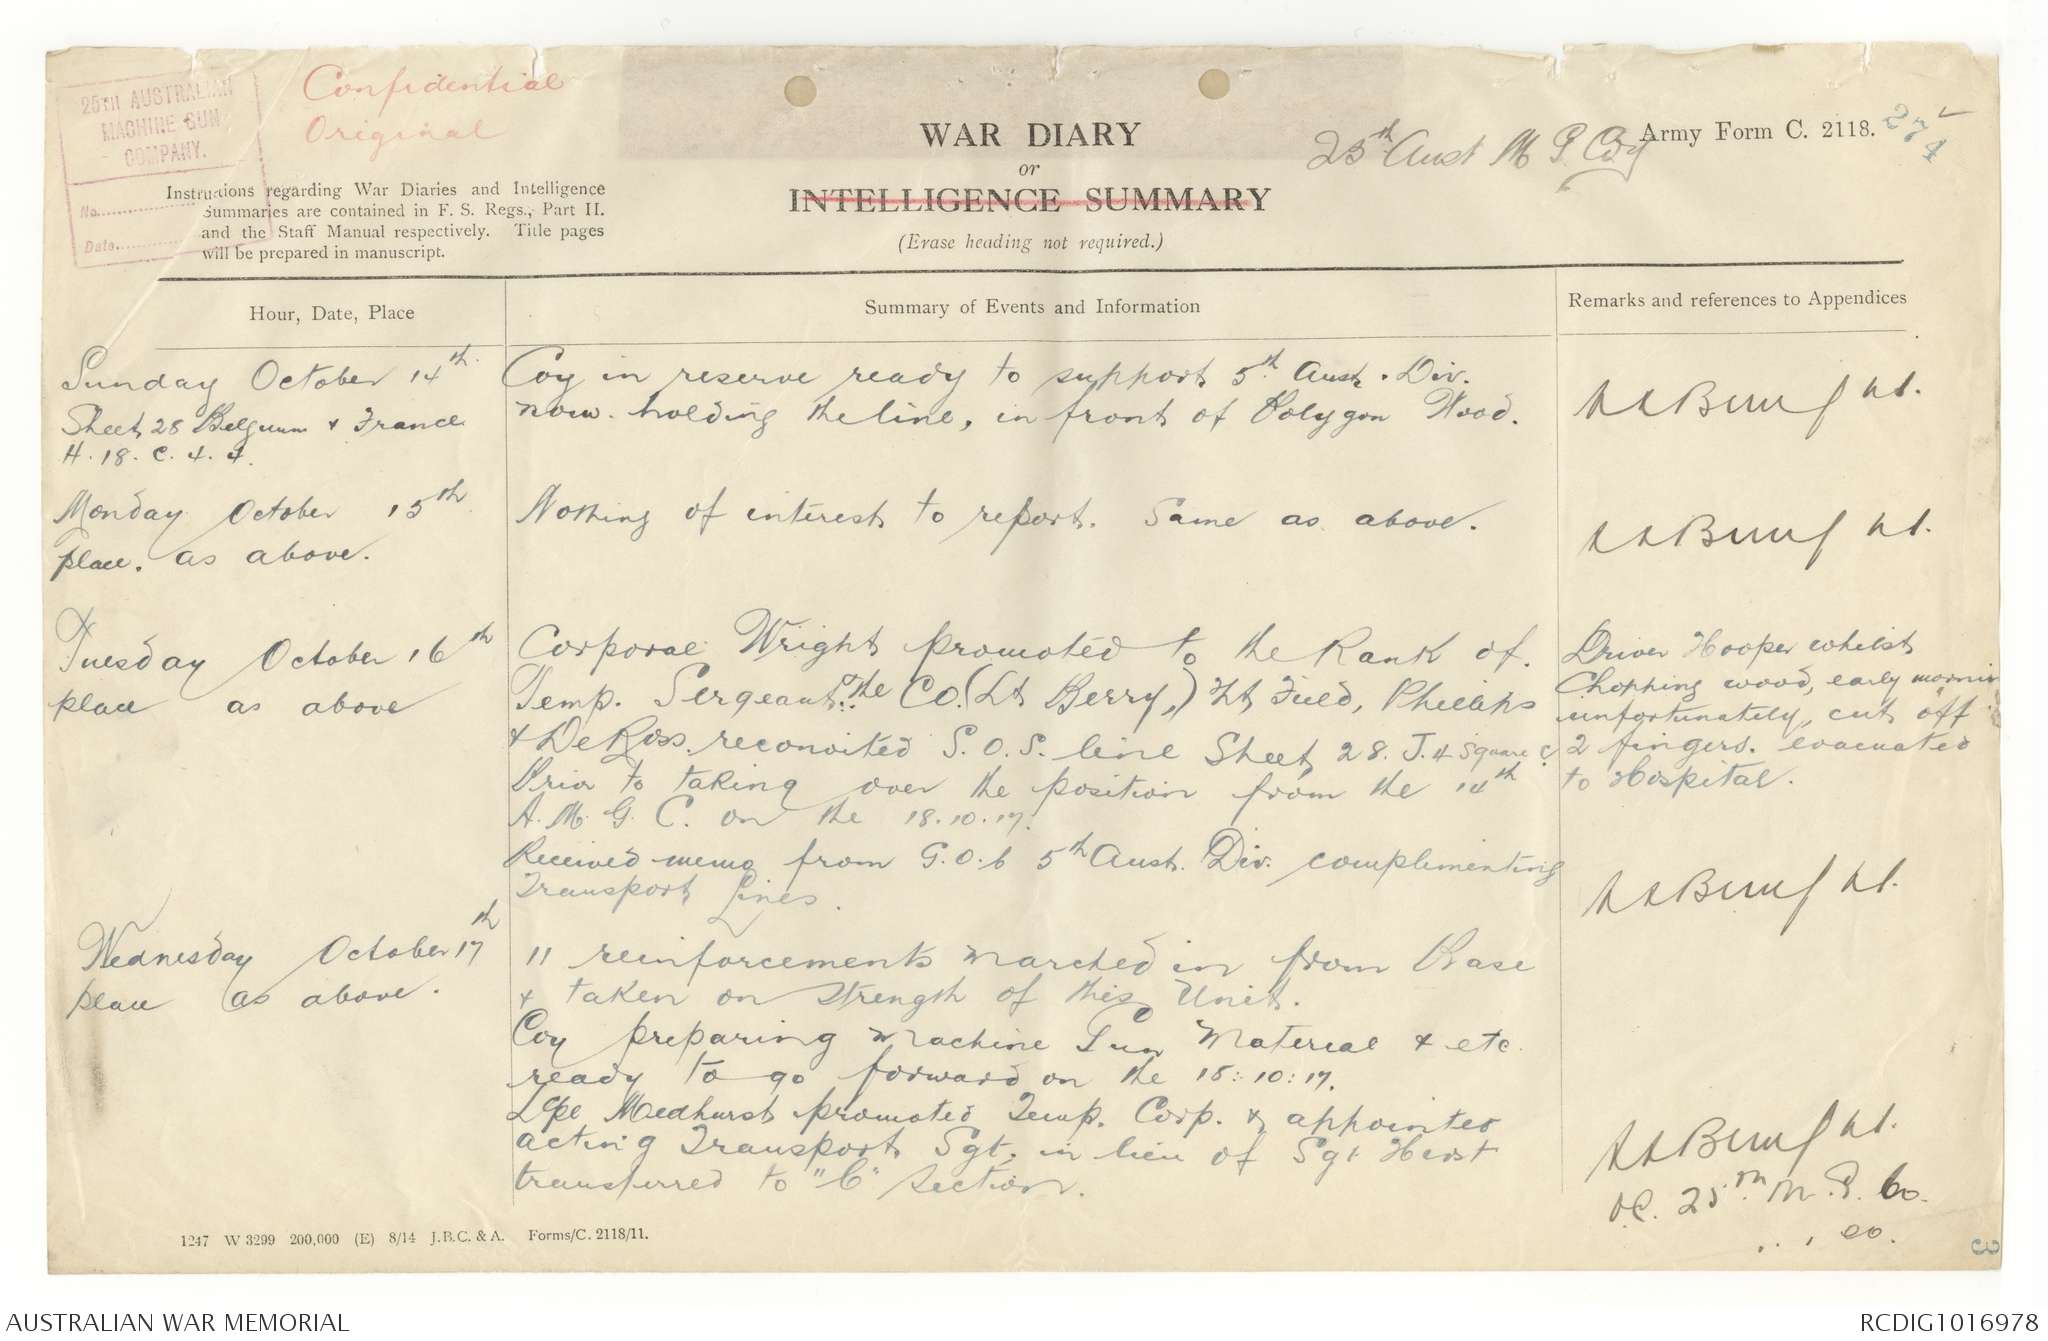 25TH AUSTRALIAN
MACHINE GUN
COMPANY.
No.
Date.
Confidential
Original
WAR DIARY
or
INTELLIGENCE SUMMARY
(Erase heading not required.)
25th Aust M G Coy
Army Form C. 2118.
274
Instructions regarding War Diaries and Intelligence
Summaries are contained in F. S. Regs., Part II.
and the Staff Manual respectively. Title pages
will be prepared in manuscript.
Hour, Date, Place
Summary of Events and Information
Remarks and references to Appendices
Sunday October 14th
Sheet 28 Belgium & France
H. 18. C. 4. 4.
Coy in reserve ready to support 5th Aust. Div.
now holding the line, in front of Polygon Wood.
Lt.
Monday October 15th
place. as above.
Nothing of interest to report. Same as above.
Lt.
Tuesday October 16th
place as above
Corporal Wright promoted to the Rank of.
Temp. Sergeant. The CO. (Lt Berry,) Lt Field, Phillips
& De Ross. reconoited S.O.S. line Sheet 28. J. 4 Square C
Prior to taking over the position from the 14th
A. M. G. C. on the 18.10.17.
Received memo from G.O.C 5th Aust. Div. complimenting
Transport Lines.
Driver Hooper whilst
Chopping wood, early mornin
unfortunately, cut off
2 fingers. evacuated
to Hospital.
Lt.
Wednesday October 17th
place as above.
11 reinforcements marched in from Base
& taken on strength of this Unit.
Coy preparing Machine Gun Material & etc
ready to go forward on the 18:10:17.
L cpl Medhurst promoted Temp. Corp. & appointed
acting Transport Sgt. in lieu of Sgt Herst
transferred to "C" Section.
Lt.
O.C. 25th M. G. Co.
1247 W 3299 200,000 (E) 8/14 J.B.C. & A. Forms/C. 2118/11.
3
AUSTRALIAN WAR MEMORIAL
RCDIG1016978